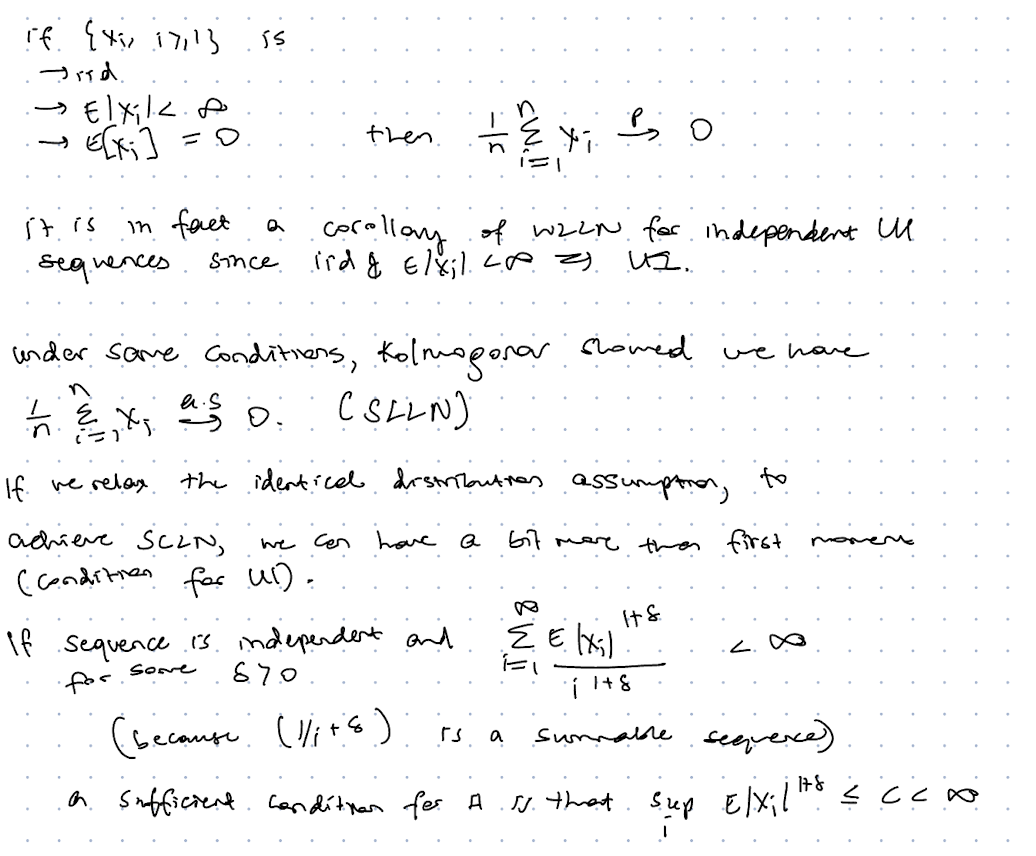 if {Xi, i≥1} is
→ iid
→ E|Xi| < ∞
→ E[Xi] = 0 then 1/n Σ_{i=1}^{n} Xi →^P 0
it is in fact a corollary of WLLN for independent UI
sequences since iid & E|Xi| < ∞ ⇒ UI.
under same conditions, Kolmogorov showed we have
1/n Σ_{i=1}^{n} Xi →^{a.s} 0. (SLLN)
If we relax the identical distribution assumption, to
achieve SLLN, we can have a bit more than first moment
(condition for UI).
If sequence is independent and Σ_{i=1}^{∞} E|Xi|^{1+δ} / i^{1+δ} < ∞
for some δ>0
(because (1/i+δ) is a summable sequence)
a sufficient condition for A is that sup_i E|Xi|^{1+δ} ≤ C < ∞